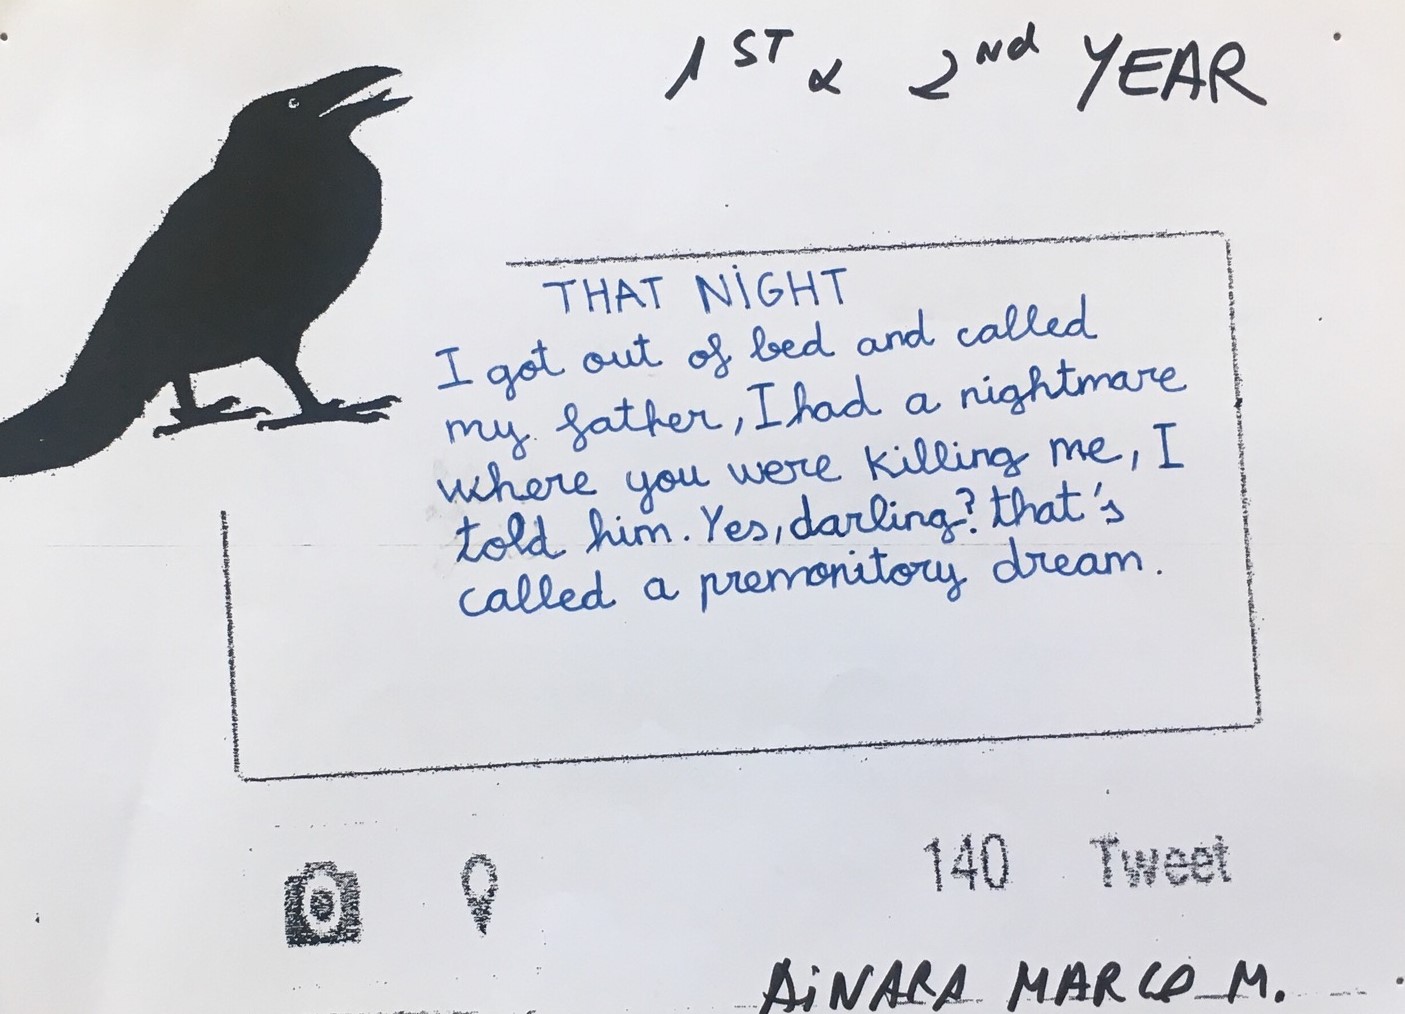 1ST & 2Nd YEAR
THAT NIGHT
I got out of bed and called
my father, I had a nightmare
where you were killing me, I
told him. Yes, darling? that's
called a premonitory dream.
140 Tweet
AiNARA MARCO M.